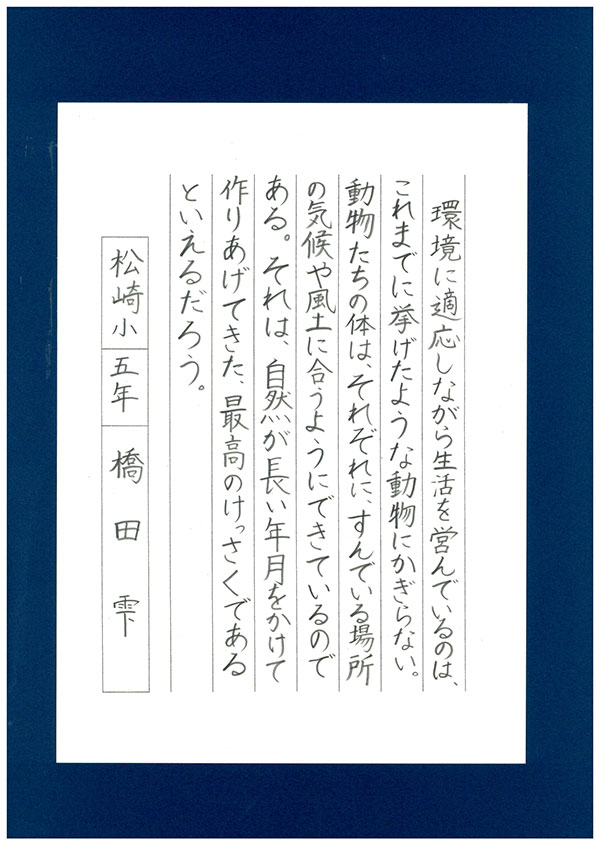 環境に適応しながら生活を営んでいるのは、
これまでに挙げたような動物にかぎらない。
動物たちの体は、それぞれに、すんでいる場所
の気候や風土に合うようにできているので
ある。それは、自然が長い年月をかけて
作りあげてきた、最高のけっさくである
といえるだろう。
松崎小 五年 橋田雫